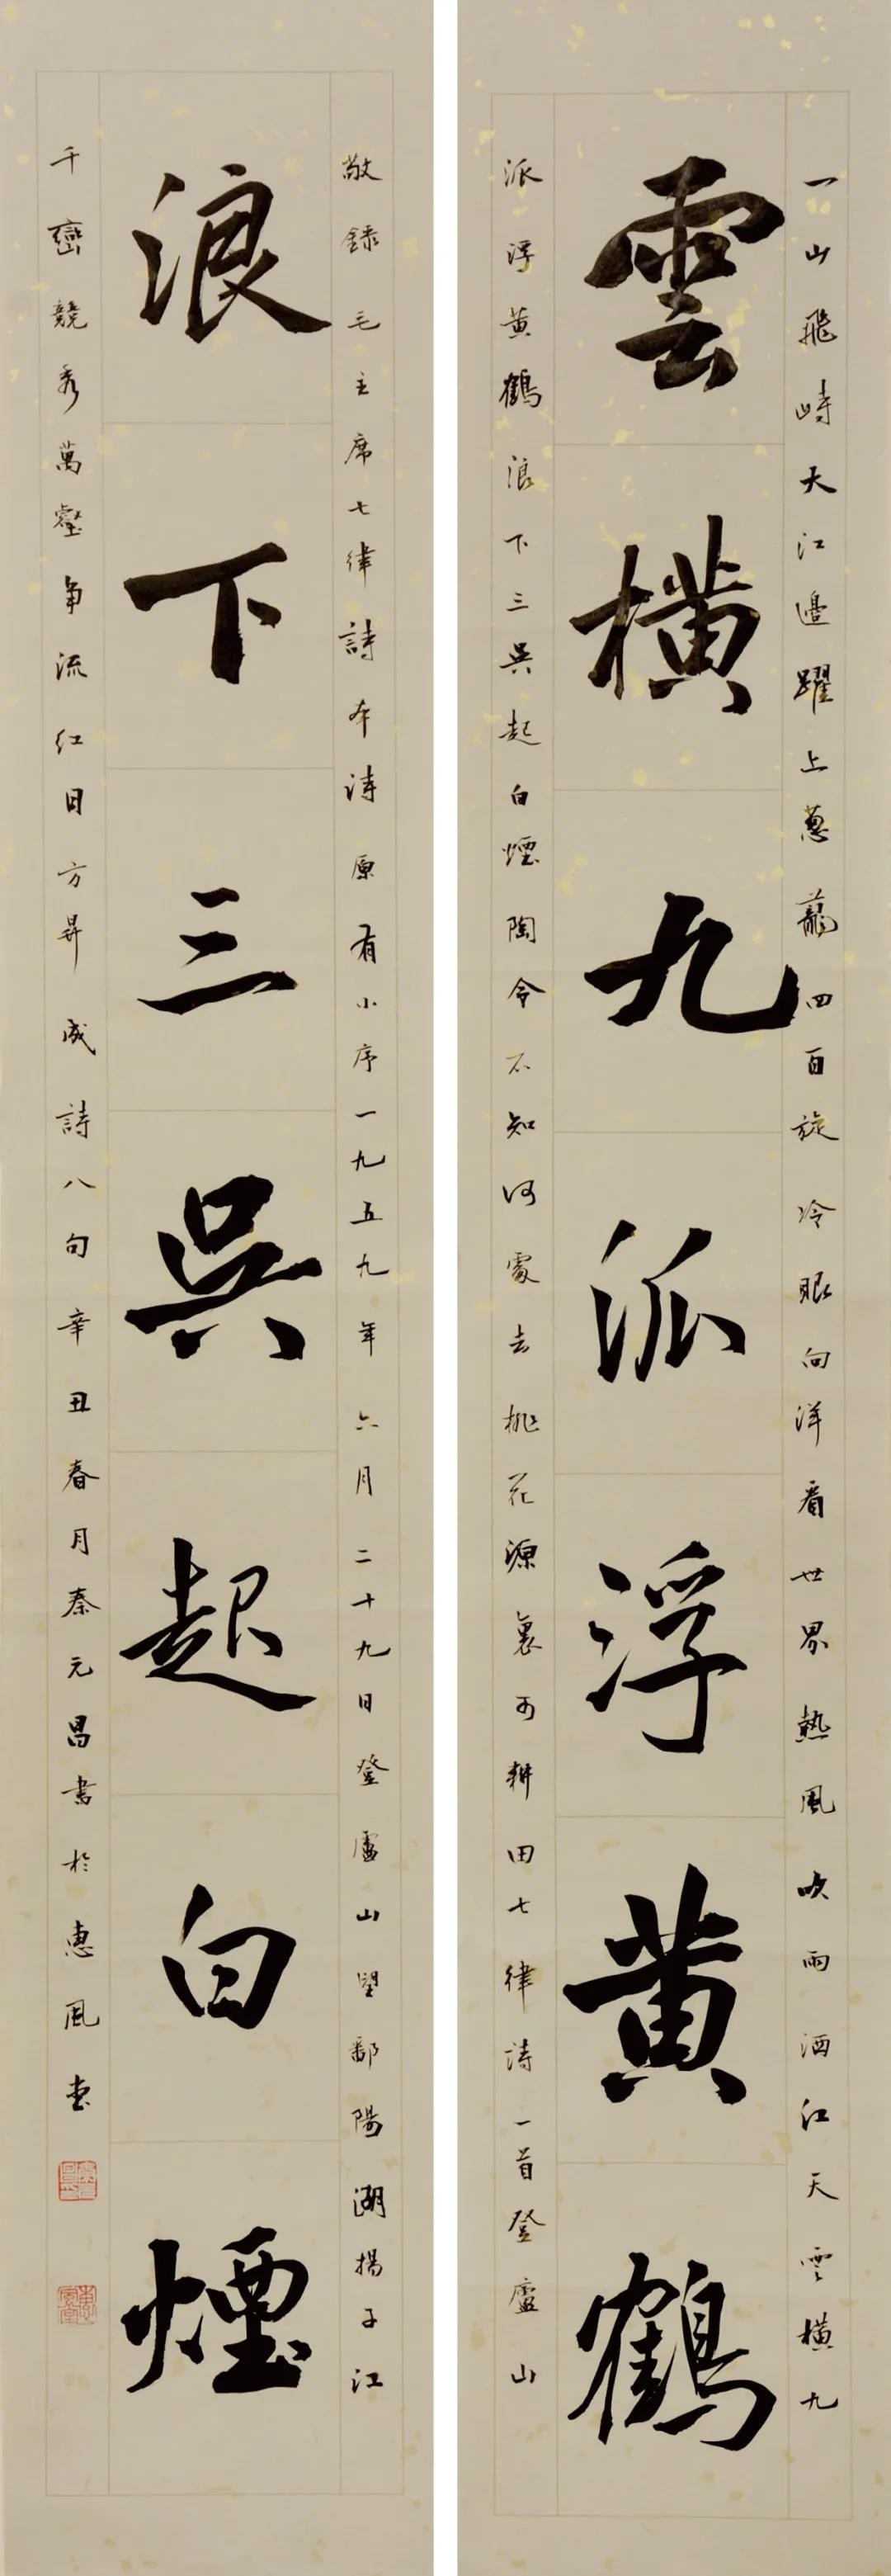 一山飛峙大江邊躍上蔥蘢四百旋冷眼向洋看世界熱風吹雨洒江天雲橫九
雲橫九派浮黃鶴
派浮黃鶴浪下三吳起白煙陶令不知何處去桃花源裏可耕田七律詩一首登廬山
敬錄毛主席七律詩本詩原有小序一九五九年六月二十九日登廬山望鄱陽湖揚子江
浪下三吳起白煙
千巒競秀萬壑爭流紅日方昇成詩八句辛丑春月秦元昌書於惠風堂